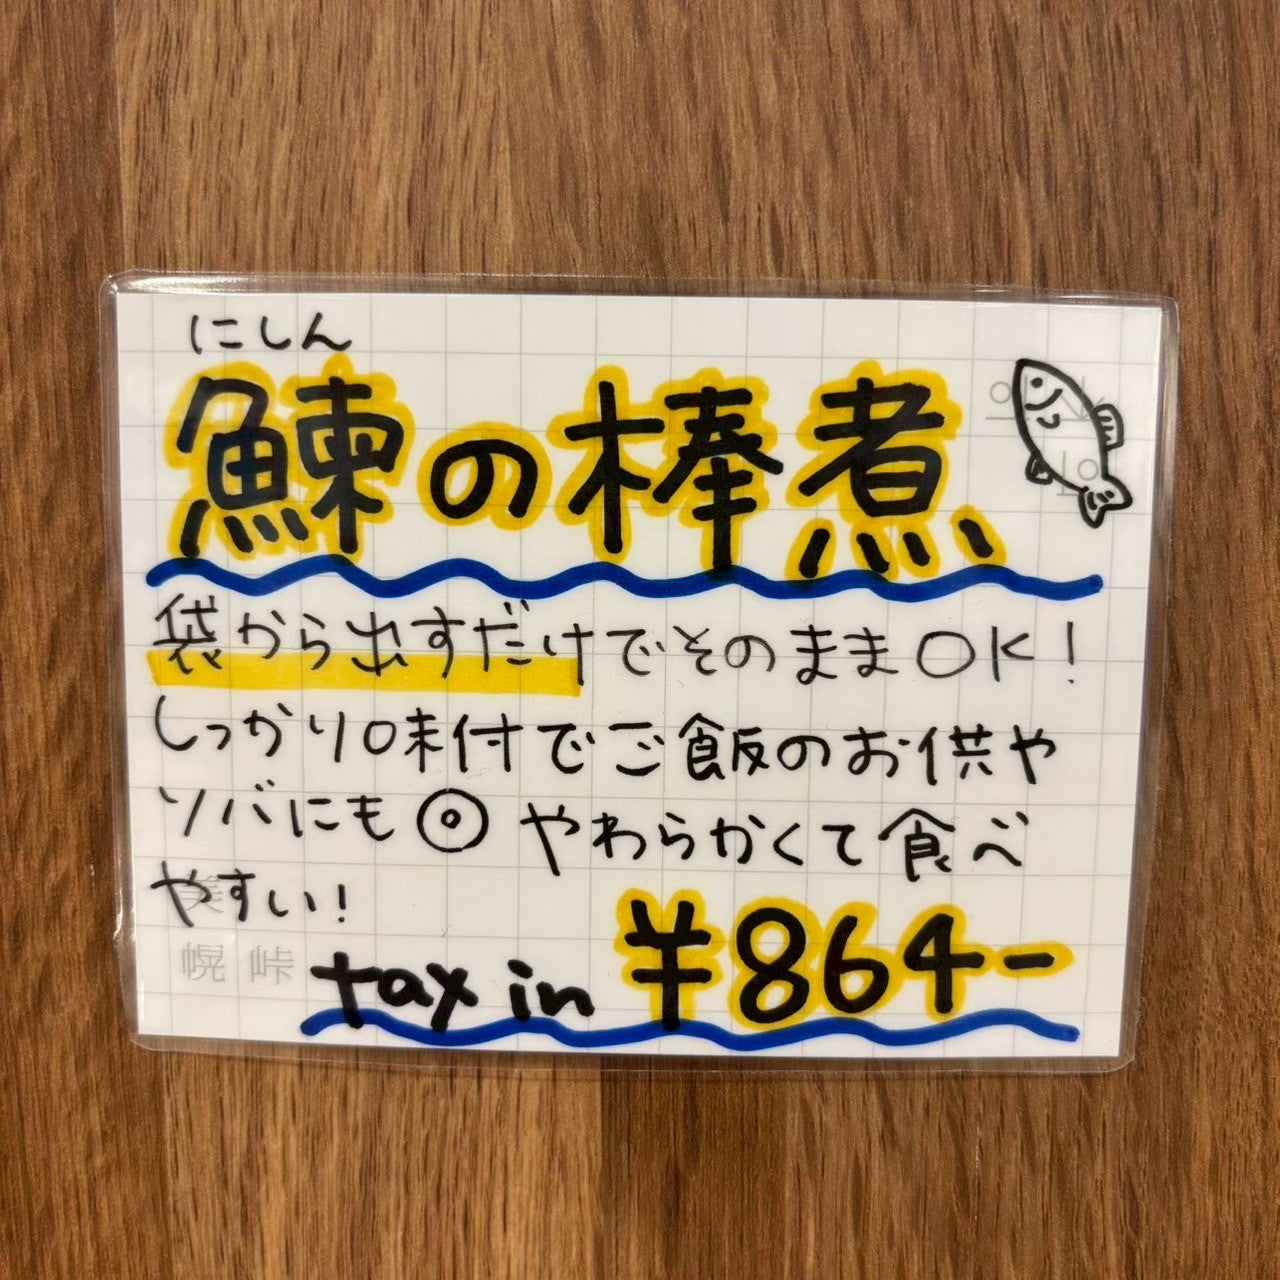 にしん
鰊の棒煮
袋から出すだけでそのままOK!
しっかり味付でご飯のお供や
ソバにも◎ やわらかくて食べ
やすい!
tax in ¥864-
幌 峠